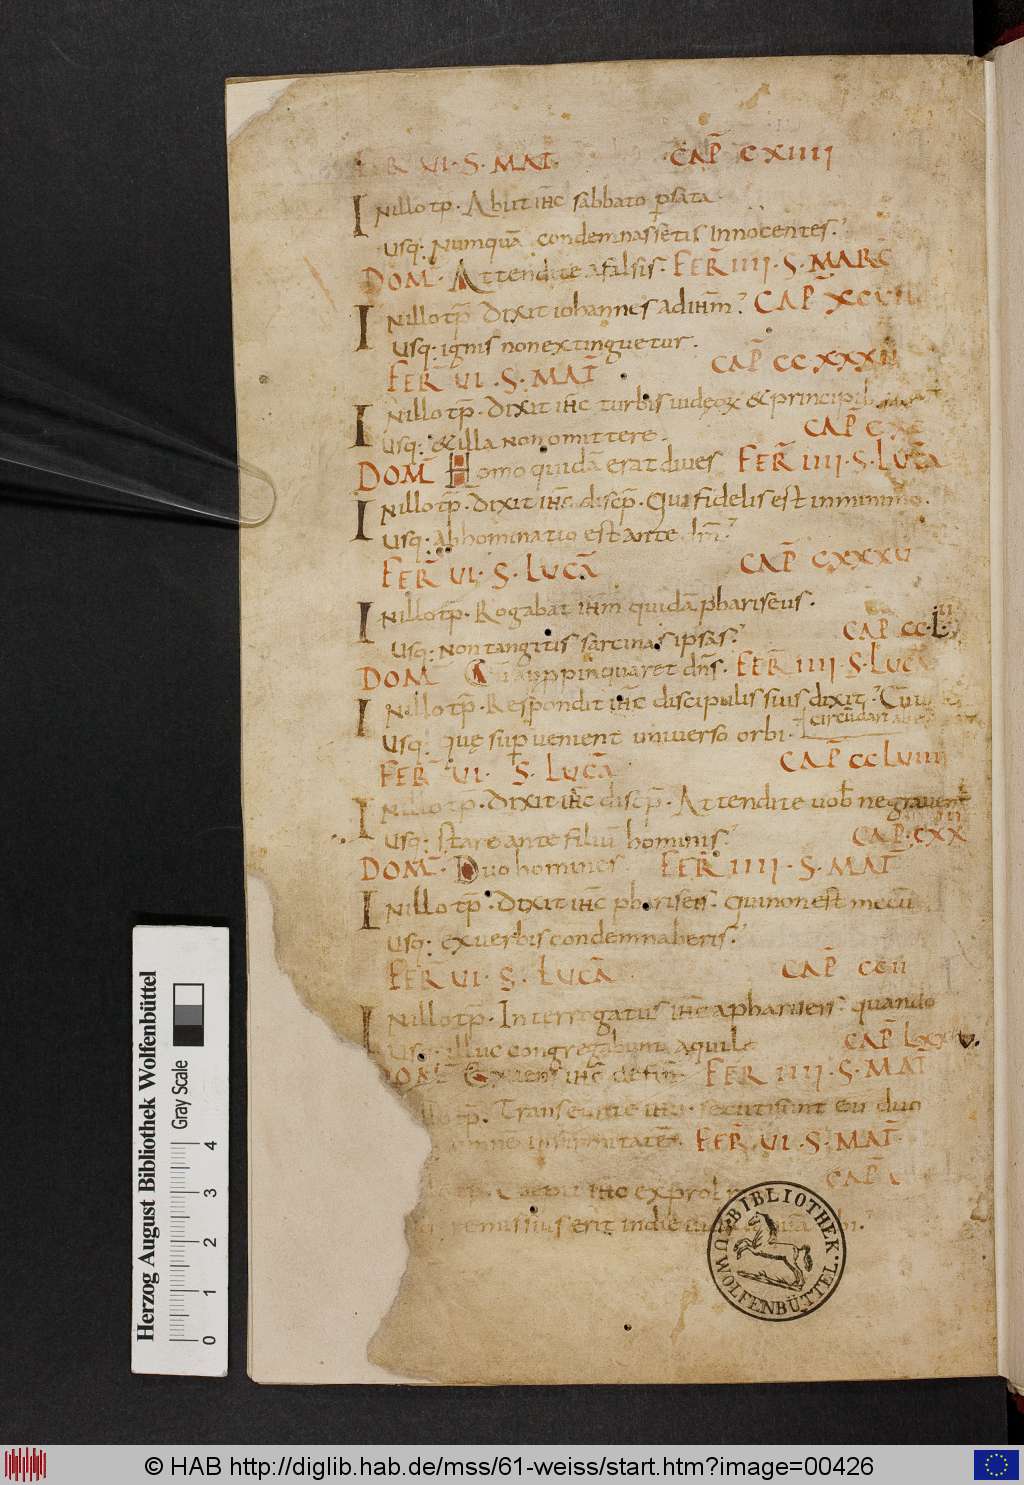 FER̄ VI · S · MAT̄. CAP̄ CXIIII
INillo tp̄ · Abiit ihc̄ sabbato p̱ sata ·
Usq: Numquā condemnassetis innocentes.
DOM̄ · Attendite afalsis · FER̄ IIII · S · MARC̄
INillo tp̄ Dixit iohannes ad ihm̄. CAP̄ XCVII
Usq: ignis non extinguetur.
FER̄ VI · S · MAT̄ CAP̄ CC XXXII
INillo tp̄ · Dixit ihc̄ turbis iudęoꝝ & principib
Usq: & illa non omittere. CAP̄ CXC
DOM̄ Homo quidā erat dives FER̄ IIII · S · LUCĀ
INillo tp̄ · Dixit ihc̄ discp̄ · Qui fidelis est in minimo.
Usq: abhominatio est ante dm̄.
FER̄ VI · S · LUCĀ CAP̄ CXXXV
INillo tp̄ · Rogabat ihm̄ quidā phariseus.
Usq: non tangitis sarcinas ipsas. CAP̄ CC · L
DOM̄ Cū appinquaret dn̄s. FER̄ IIII · S · LUCĀ
INillo tp̄ · Respondit ihc̄ discipulis suis dixit. Cum
circūdari ab
Usq: quę supvenient universo orbi.
FER̄ VI · S · LUCĀ CAP̄ CCLVIIII
INillo tp̄ · Dixit ihc̄ discp̄ · Attendite vob̄ ne gravent̄
Usq: stare ante filiū hominis.
CAP̄ · CXX
DOM̄ · Duo homines. FER̄ IIII · S · MAT̄
INillo tp̄ · Dixit ihc̄ phariseis. Qui non est mecū
Usq: ex verbis condemnaberis.
FER̄ VI · S · LUCĀ CAP̄ CCII
INillo tp̄ · Interrogatus ihc̄ a phariseis. quando
Usq: illuc congregabunt aquile CAP̄ LXX
DOM̄ Exiens ihc̄ de fin FER IIII · S · MAT̄
tp̄. Transeunte ihu · secuti sunt eū duo
omnē infirmitatē. FER̄ VI · S · MAT̄
CAP̄ C
tp̄. Coepit ihc̄ exprob
remissius erit in die
BIBLIOTHEK · ZU WOLFENBÜTTEL ·
Herzog August Bibliothek Wolfenbüttel
Gray Scale
0 1 2 3 4
© HAB http://diglib.hab.de/mss/61-weiss/start.htm?image=00426